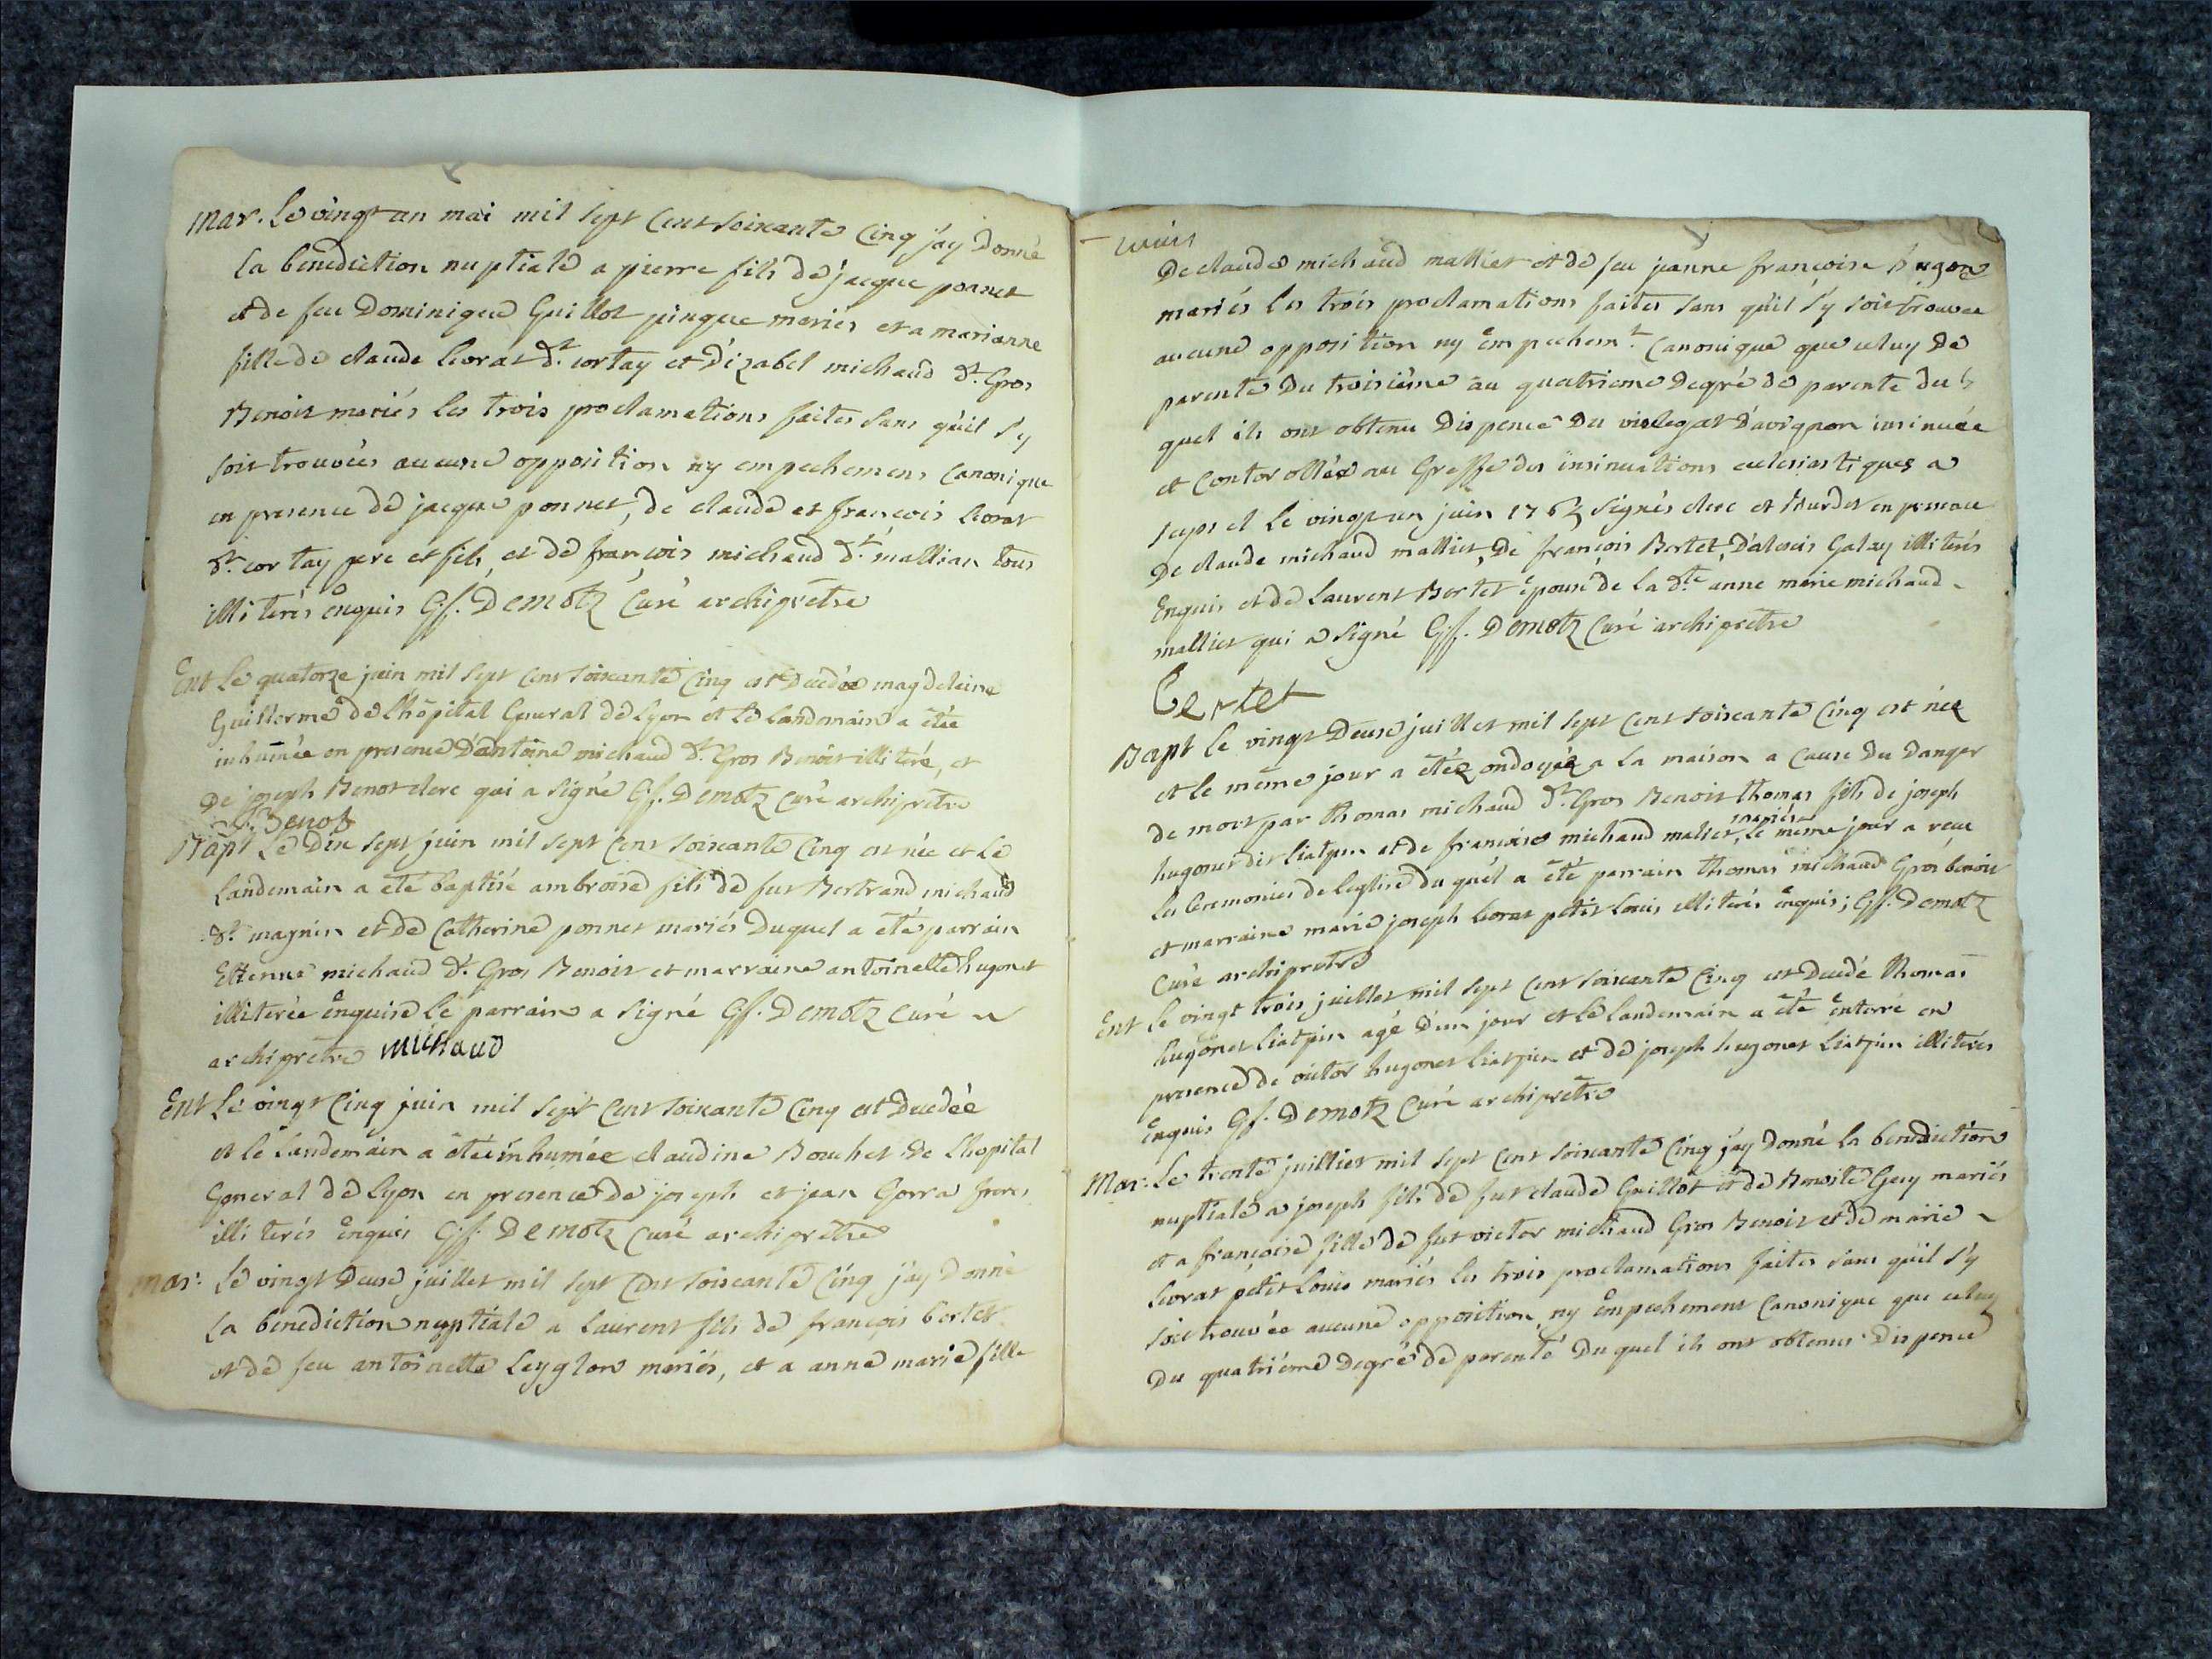 mar. le vingt un mai mil sept cent soixante cinq j'ay donné
la benediction nuptiale a pierre fils de jacque ponnet
et de feu Dominique Guillot pingue mariés et a marianne
fille de claude livrat dt. cortay et d'izabel michaud dt. Gros
Benoit mariés les trois proclamations faites sans qu'il s'y
soit trouvées aucune opposition ny empechemens canonique
en presence de jacque ponnet, de claude et françois livrat
dt. cortay pere et fils, et de françois michaud dt. mallian tous
illiterés enquis Gf. Demotz curé archiprêtre
Ent le quatorze juin mil sept cent soixante cinq est decedée magdeleine
Guillerme de l'hôpital General de Lyon et le landemain a étée
inhumée en presence d'antoine michaud dt. Gros Benoit illiteré, et
de joseph Benot clerc qui a signé Gf. Demotz curé archiprêtre
Benot
Bapt le dix sept juin mil sept cent soixante cinq est née et le
landemain a été baptisé ambroise fils de feu Bertrand michaud
dt. magnin et de Catherine ponnet mariés duquel a été parrain
Etienne michaud dt. Gros Benoit et marraine antoinette hugonet
illiterée enquise le parrain a signé Gf. Demotz curé
archiprêtre michaud
Ent le vingt cinq juin mil sept cent soixante cinq est decedée
et le landemain a étée inhumée claudine Bouchet de l'hopital
General de Lyon en presence de joseph et jean Gorra freres
illiterés enquis Gf. Demotz curé archiprêtre
mar: le vingt deux juillet mil sept cent soixante cinq j'ay donné
la benediction nuptiale a laurent fils de françois bertet
et de feu antoinette Leyglon mariés, et a anne marie fille
de claude michaud malliet et de feu jeanne françoise hugon
mariés les trois proclamations faites sans qu'il s'y soit trouvée
aucune opposition ny empechemt. canonique que celuy de
parenté du troisième au quatrieme degré de parente du
quel ils ont obtenu dispence du vicelegat d'avignon insinuée
et contorollée au Greffe des insinuations eclesiastiques a
le vingt un juin signés clerc et en presence
de claude michaud malliet, de françois Bertet, d'alexis Galay illiterés
Enquis et de laurent Bertet epoux de la dte. anne marie michaud
malliet qui a signé Gf. Demotz curé archiprêtre
Bertet
Bapt le vingt deux juillet mil sept cent soixante cinq est née
et le même jour a étée ondoyée a la maison a cause du danger
de mort par thomas michaud dt. Gros Benoit thomas fils de joseph
hugonet dit liatpin et de françoise michaud maliet, mariés le même jour a receu
les ceremonies de l'eglise duquel a été parrain thomas michaud Gros benoit
et marraine marie joseph livrat petit louis illiterés enquis; Gf. Demotz
curé archiprêtre
Ent le vingt trois juillet mil sept cent soixante cinq est decedé thomas
hugonet liatpin agé d'un jour et le landemain a été enterré en
presence de victor hugonet liatpin et de joseph hugonet liatpin illiterés
enquis Gf. Demotz curé archiprêtre
Mar: le trente juilliet mil sept cent soixante cinq j'ay donné la benediction
nuptiale a joseph fils de feu claude Guillot et de Benoite Gay mariés
et a françoise fille de feu victor michaud Gros Benoit et de marie
livrat petit louis mariés les trois proclamations faites sans qu'il s'y
soit trouvée aucune opposition ny empechement canonique que celuy
du quatrième degré de parenté duquel ils ont obtenus dispence